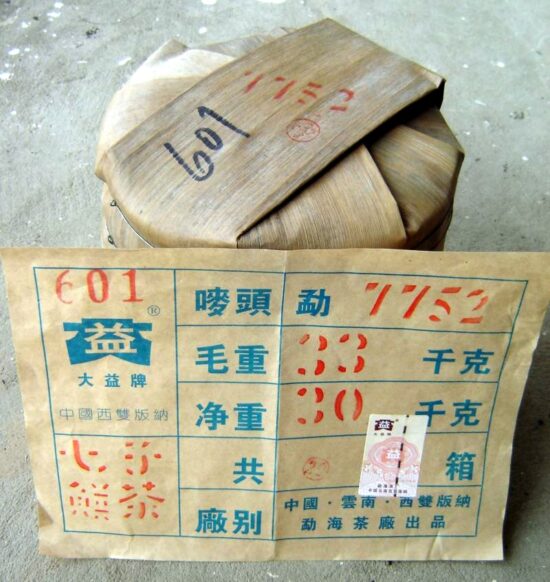 7752
601
601
嘜頭 勐 7752
®
益
大益牌
毛重 33 千克
中國西雙版納
净重 30 千克
七子
餅茶
共 箱
益
大益牌
廠别
中國·雲南·西雙版納
勐海茶廠出品